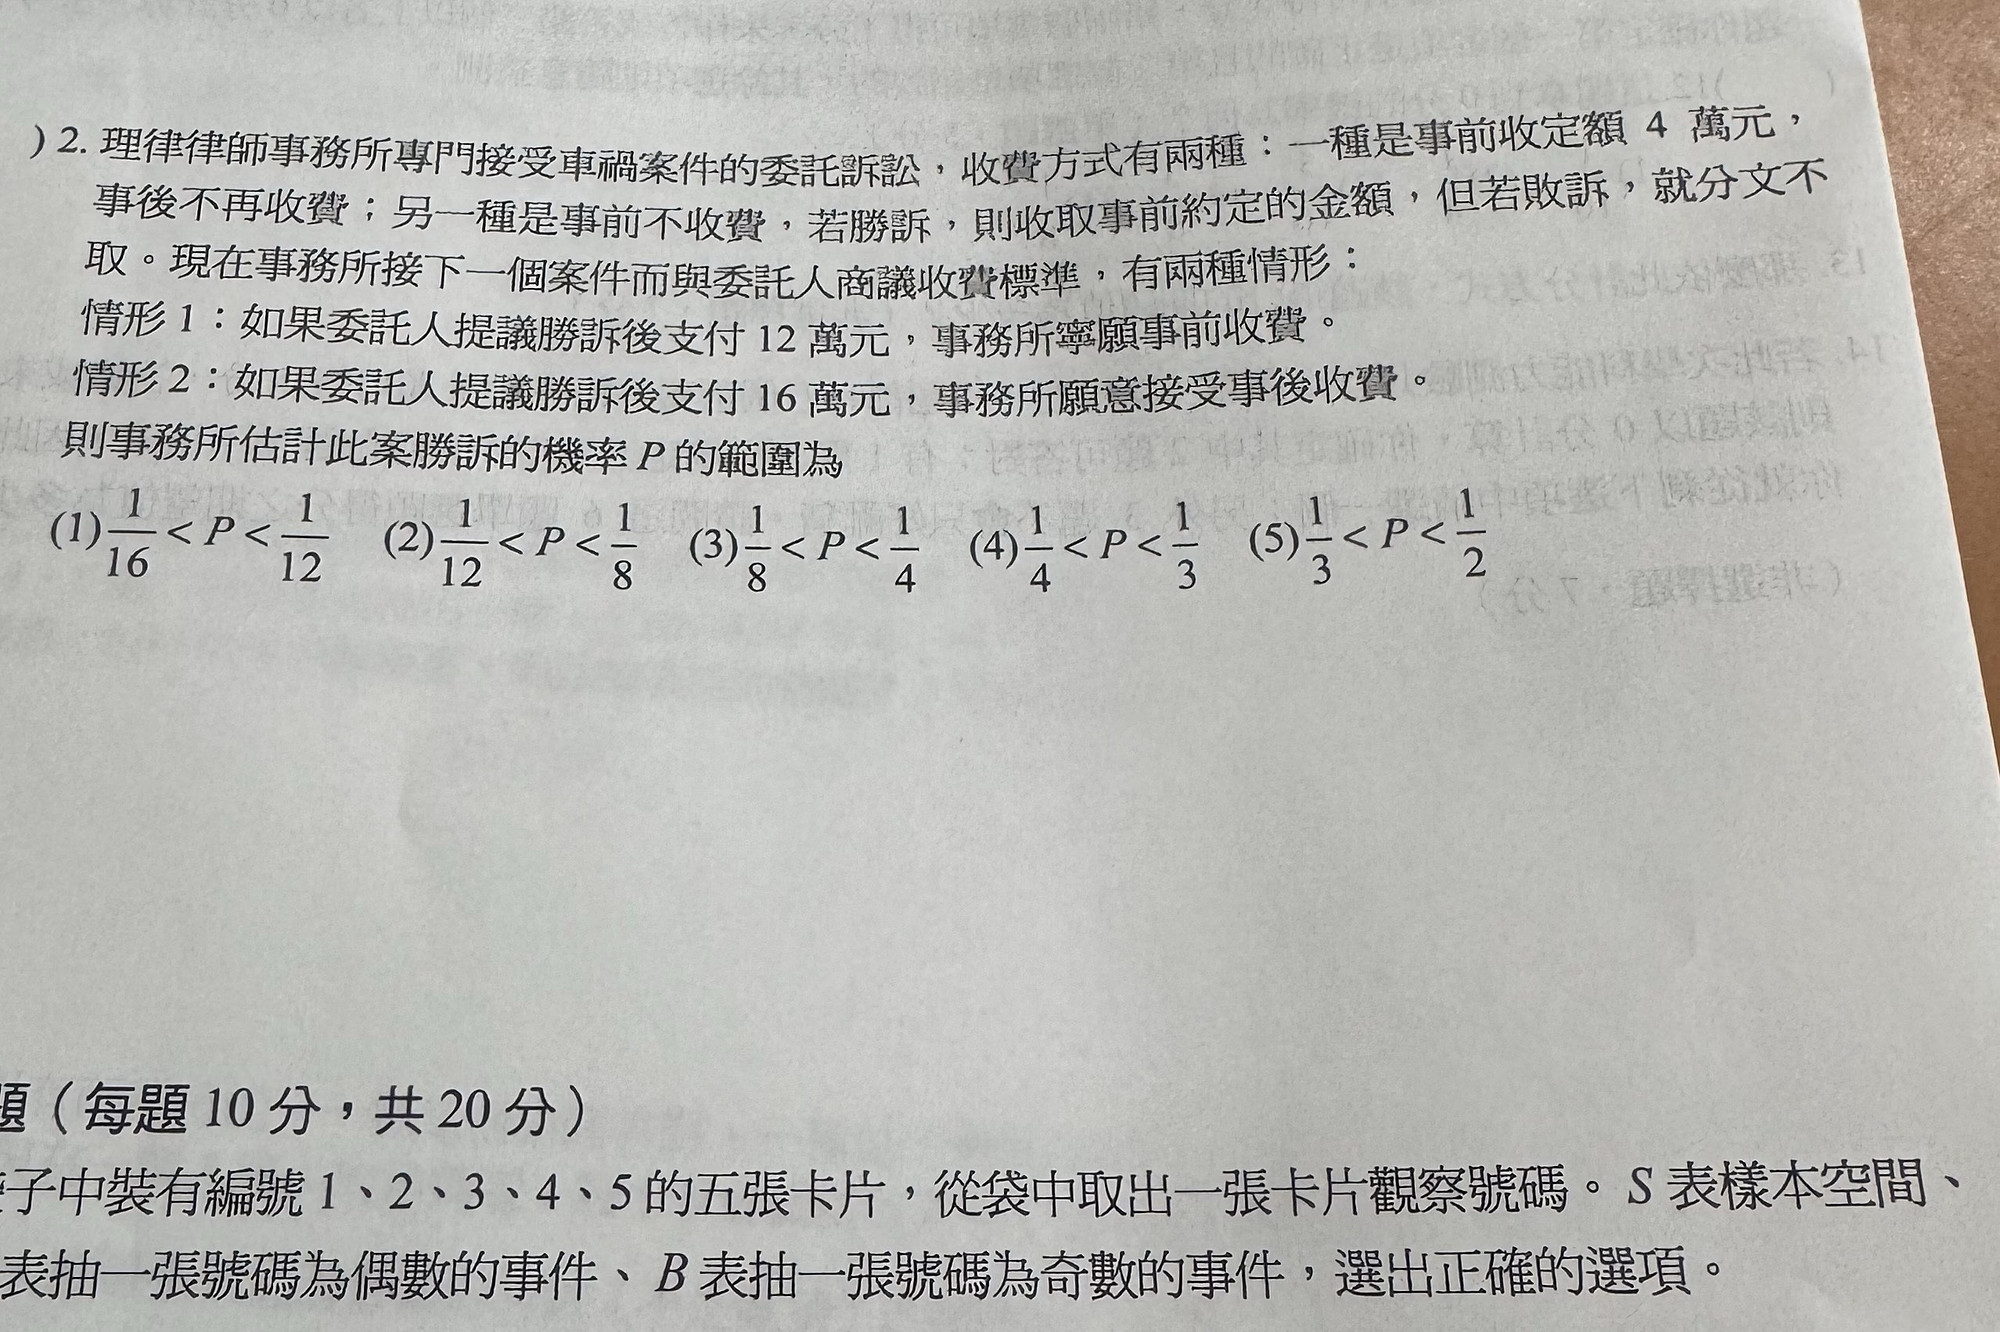 )2. 理律律師事務所專門接受車禍案件的委託訴訟，收費方式有兩種：一種是事前收定額 4 萬元，
事後不再收費；另一種是事前不收費，若勝訴，則收取事前約定的金額，但若敗訴，就分文不
取。現在事務所接下一個案件而與委託人商議收費標準，有兩種情形：
情形 1：如果委託人提議勝訴後支付 12 萬元，事務所寧願事前收費。
情形 2：如果委託人提議勝訴後支付 16 萬元，事務所願意接受事後收費。
則事務所估計此案勝訴的機率 P 的範圍為
(1) 1/16 < P < 1/12 (2) 1/12 < P < 1/8 (3) 1/8 < P < 1/4 (4) 1/4 < P < 1/3 (5) 1/3 < P < 1/2
題（每題 10 分，共 20 分）
子中裝有編號 1、2、3、4、5 的五張卡片，從袋中取出一張卡片觀察號碼。S 表樣本空間、
表抽一張號碼為偶數的事件、B 表抽一張號碼為奇數的事件，選出正確的選項。